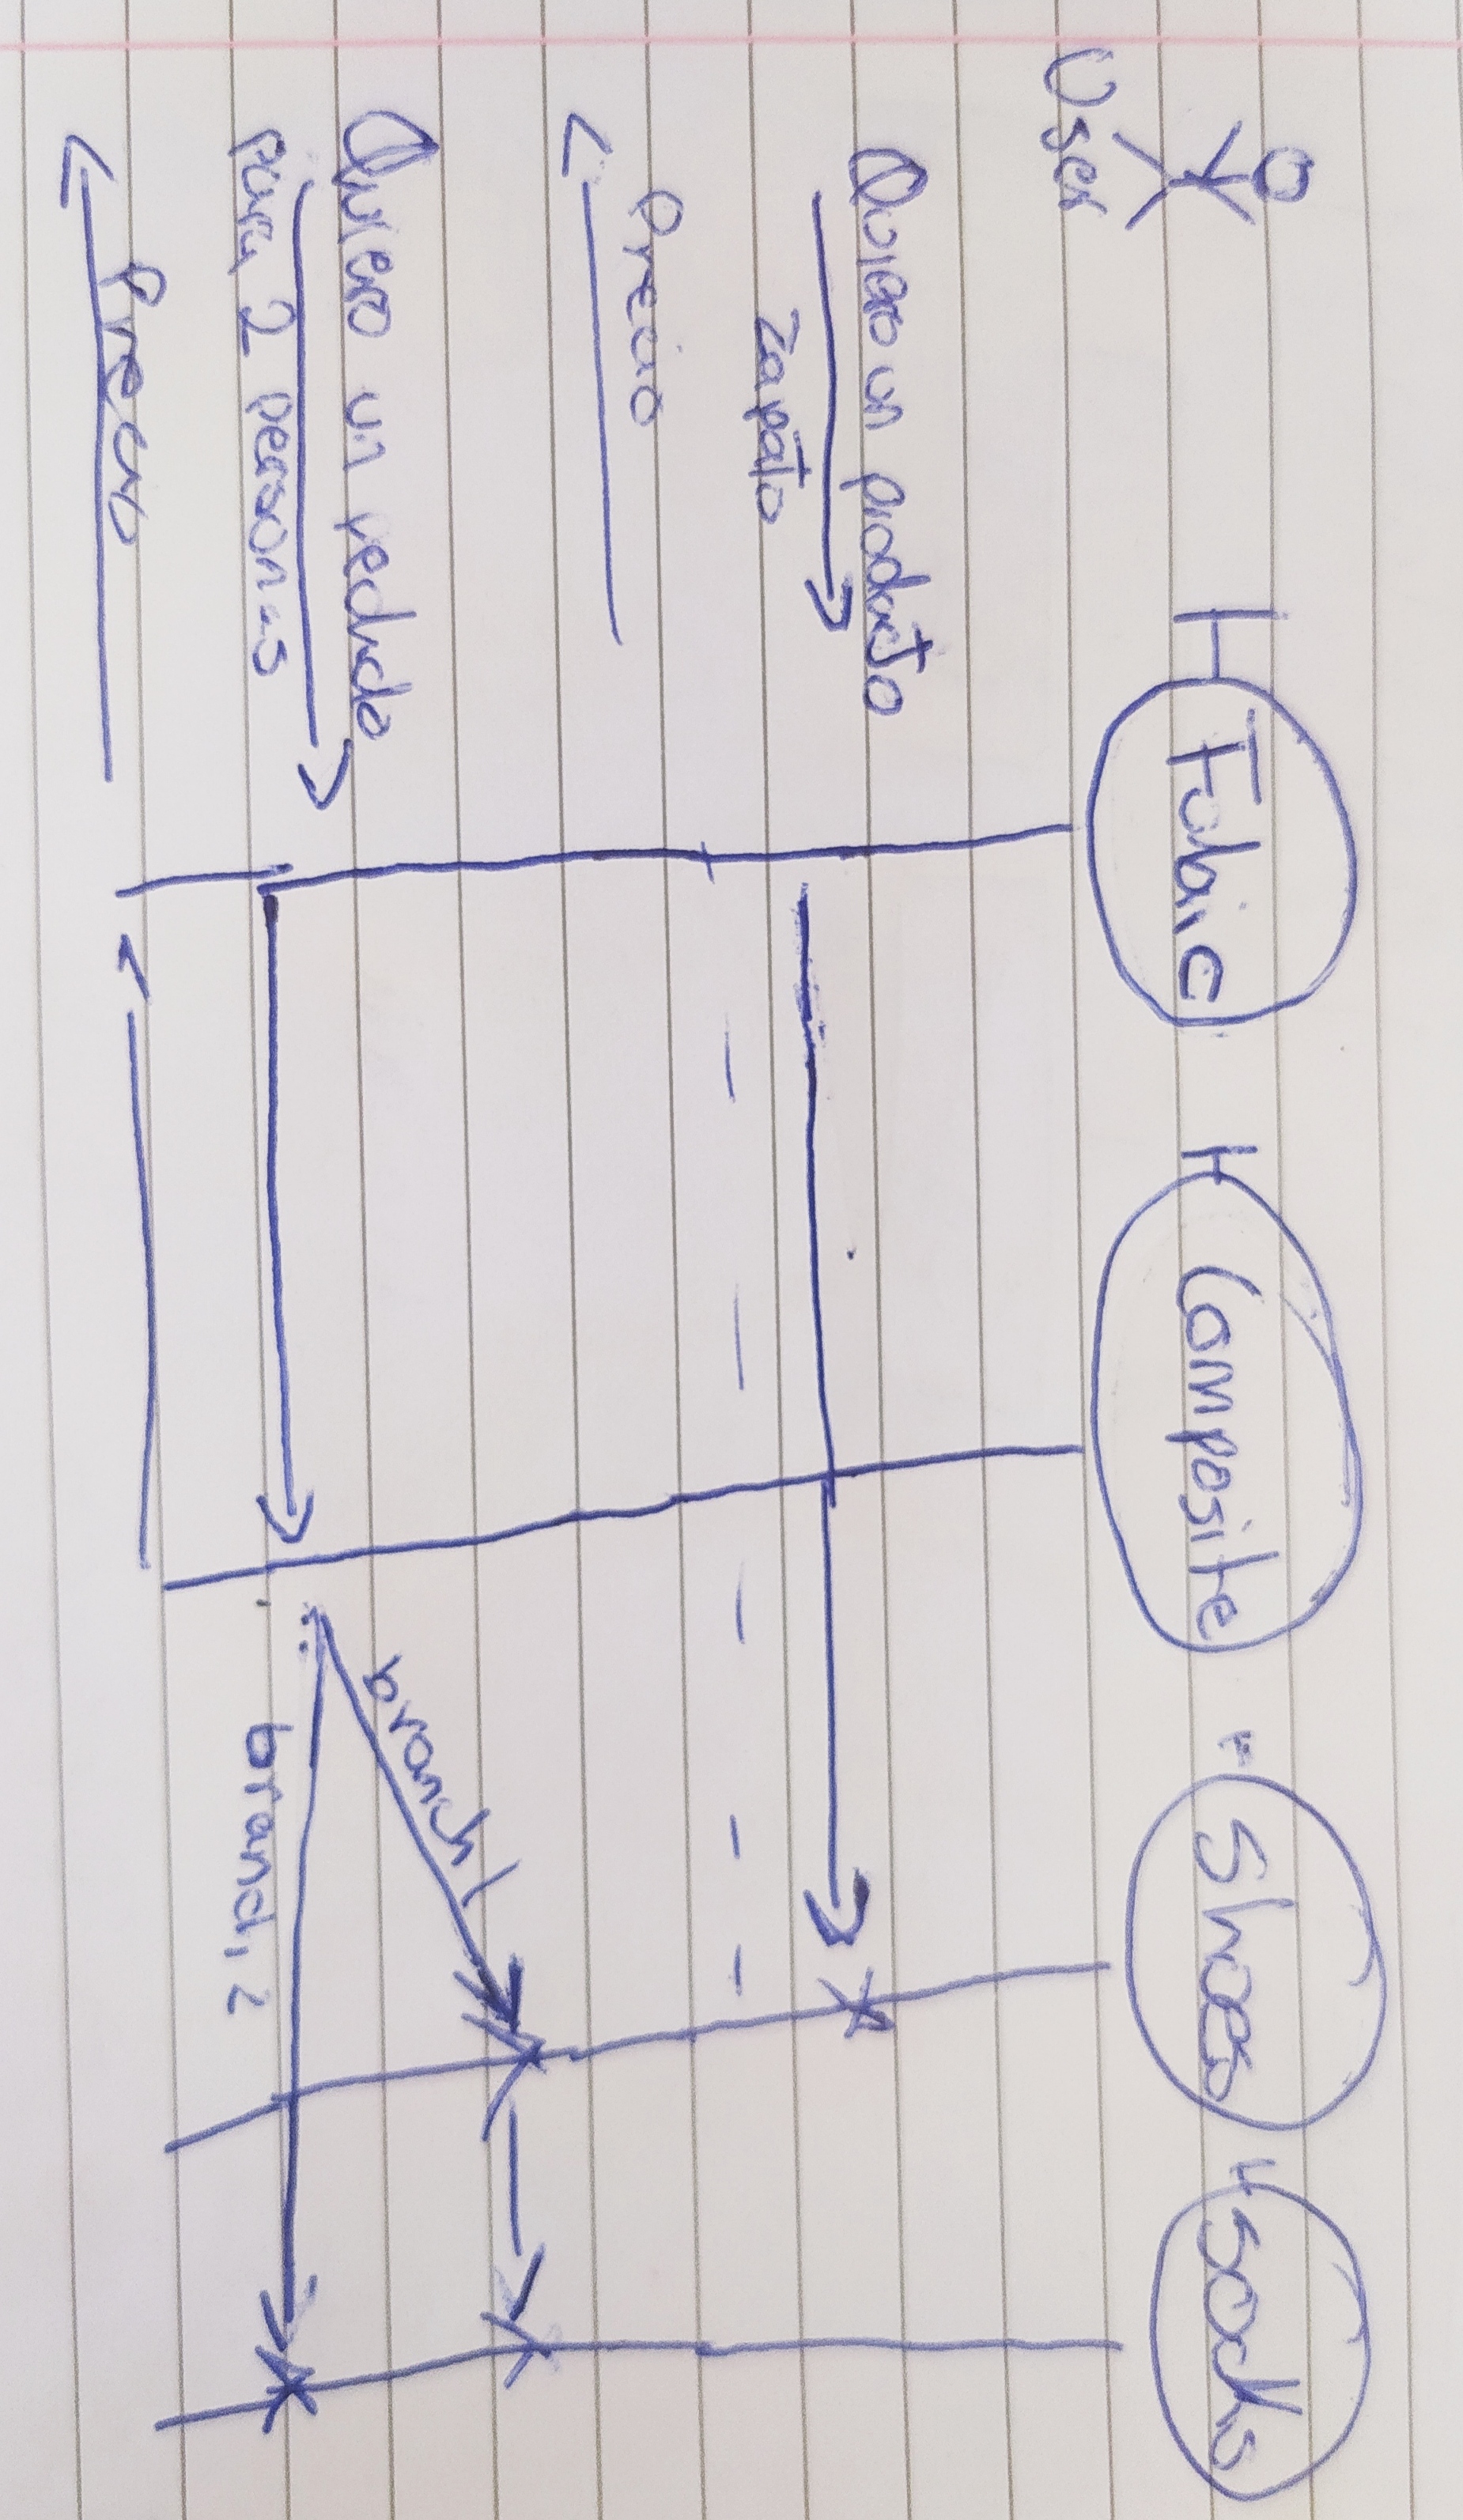 User
Fabric
Composite
Shoes
Socks
Quiero un producto
zapato
Precio
Quiero un pedido
para 2 personas
Precio
branch 1
branch 2